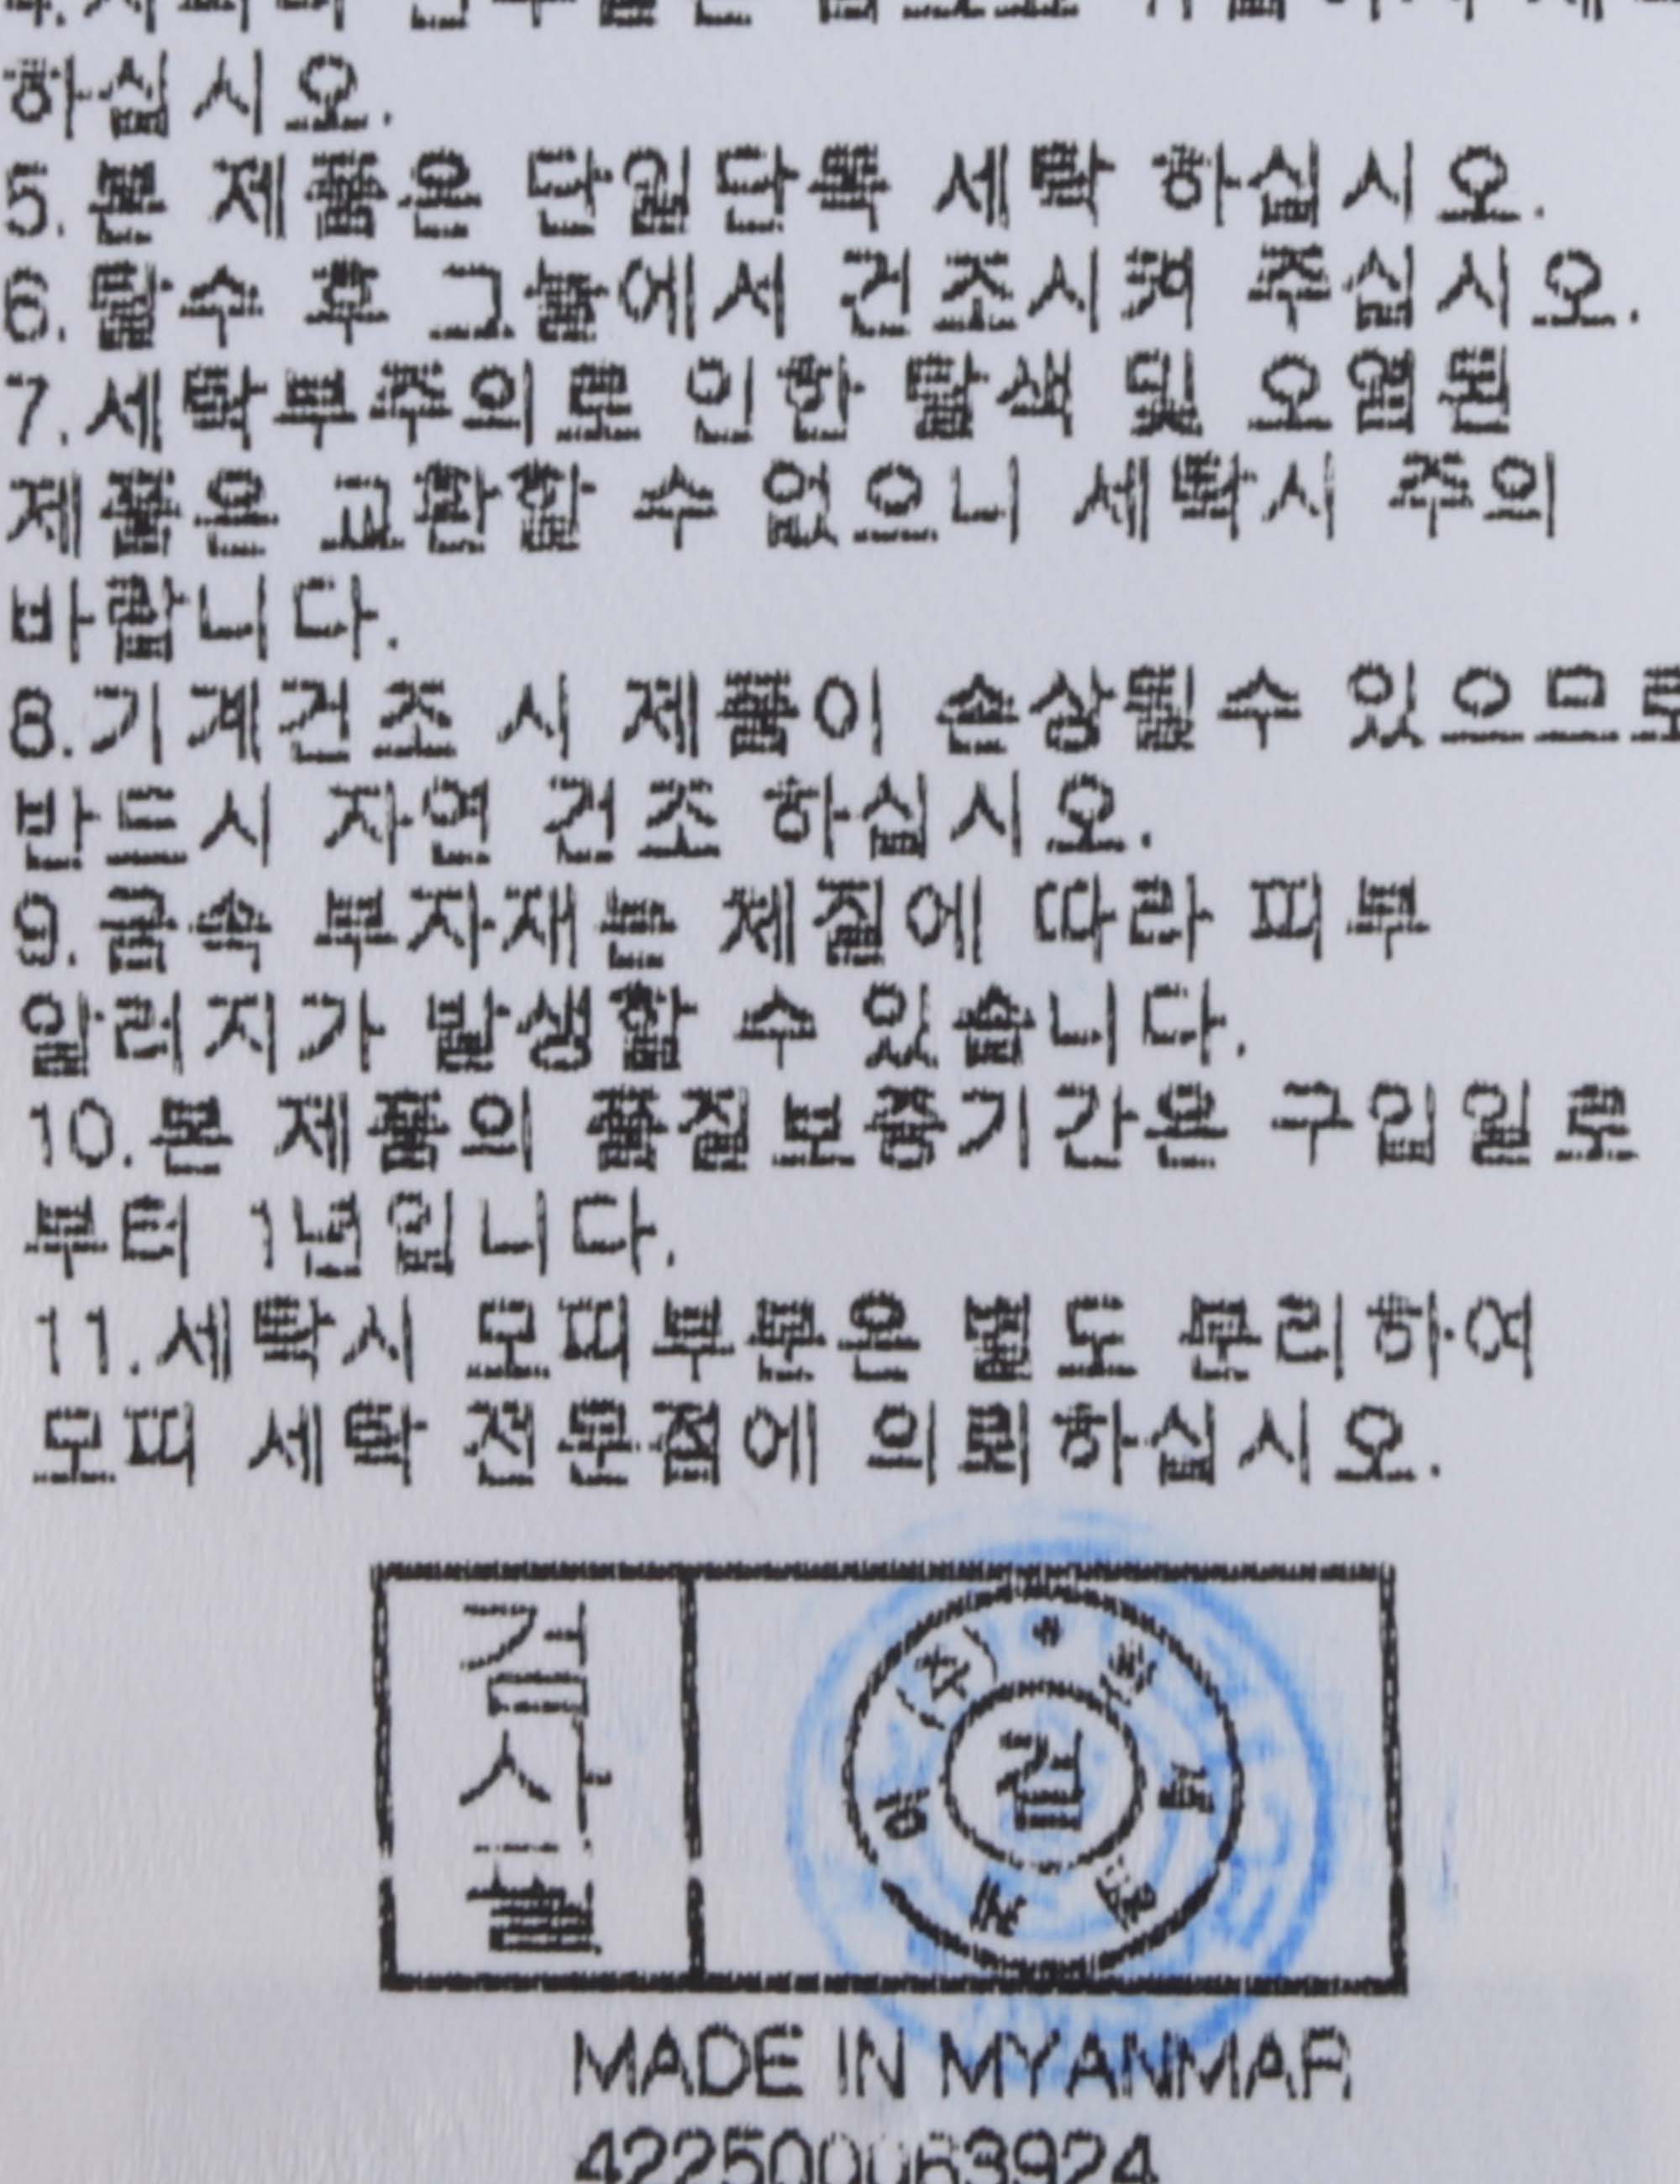 하십시오.
5.본 제품은 단일단독 세탁 하십시오.
6.탈수 후 그늘에서 건조시켜 주십시오.
7.세탁부주의로 인한 탈색 및 오염된
제품은 교환할 수 없으니 세탁시 주의
바랍니다.
8.기계건조 시 제품이 손상될수 있으므로
반드시 자연 건조 하십시오.
9.금속 부자재는 체질에 따라 피부
알러지가 발생할 수 있습니다.
10.본 제품의 품질보증기간은 구입일로
부터 1년입니다.
11.세탁시 모피부분은 별도 분리하여
모피 세탁 전문점에 의뢰하십시오.
검사필
검
MADE IN MYANMAR